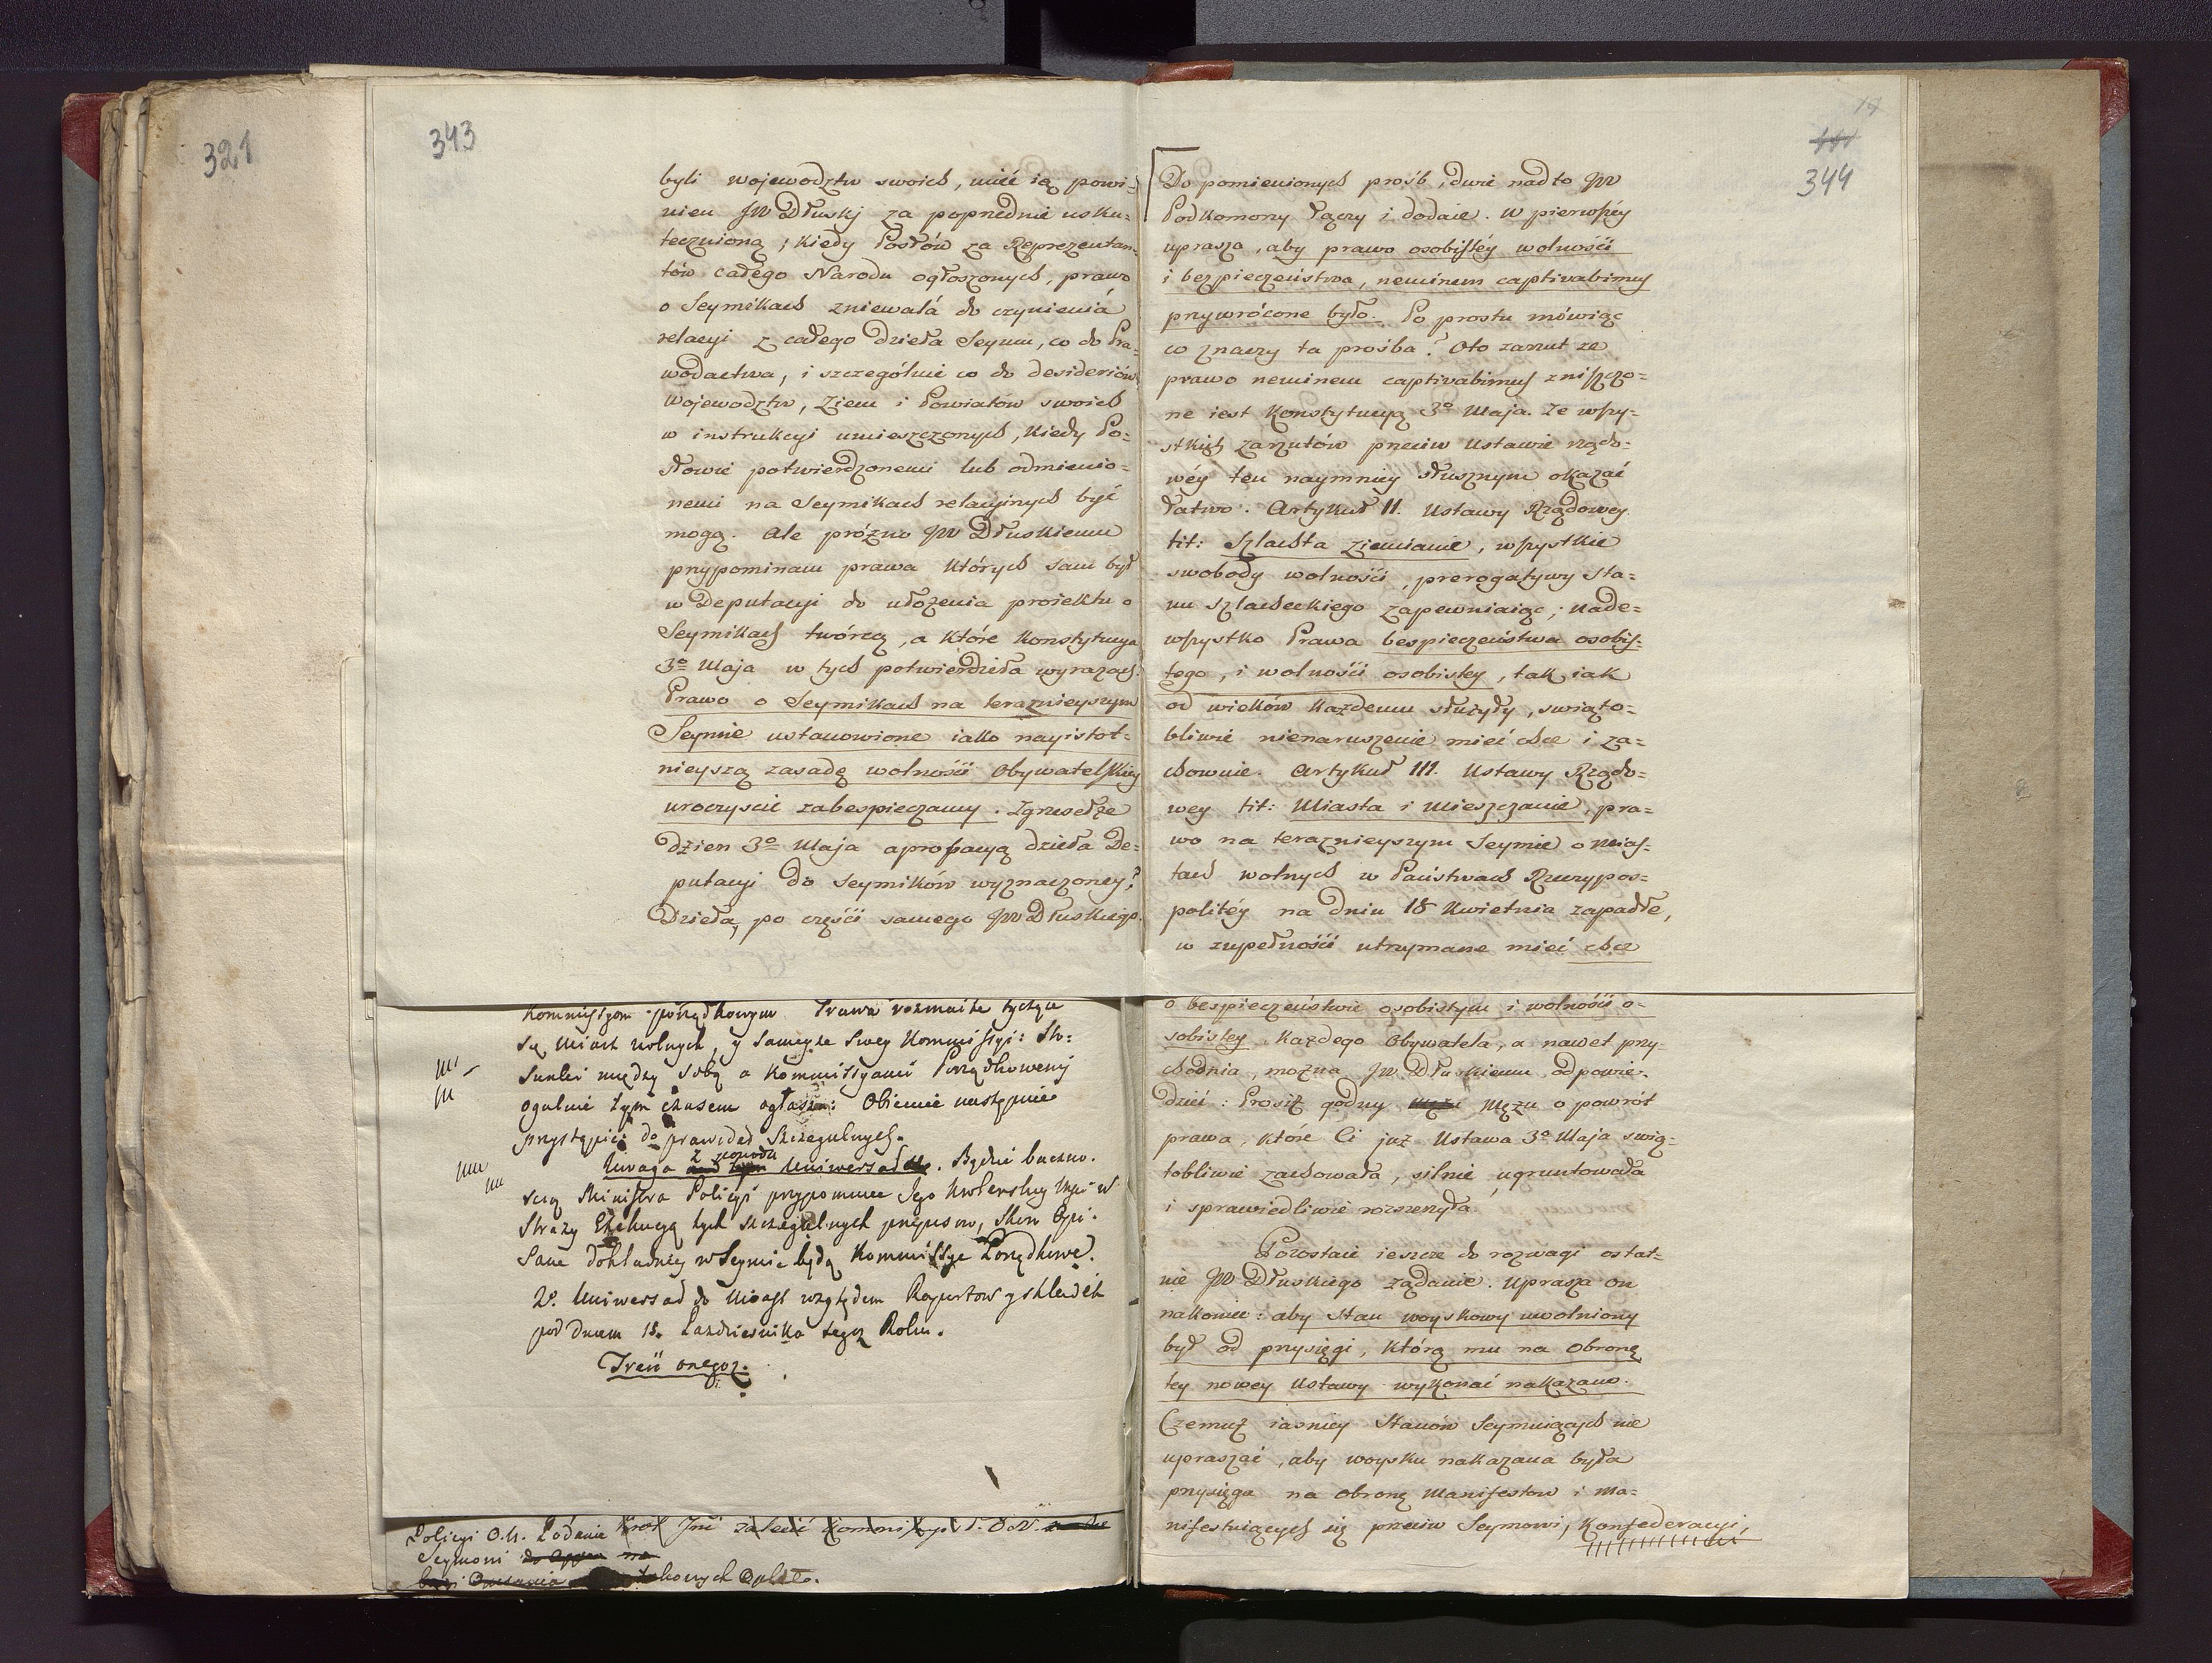 321
343
byli wojewodztw swoich, mieć ią powi=
nien JW Dłuskj za poprzednie usku=
tecznioną; kiedy Posłów za Reprezentan=
tów całego Narodu ogłoszonych, prawo
o Seymikach zniewala do czynienia
relacyi z całego dzieła Seymu, co do Pra=
wodactwa, i szczególnie co do desideriów
Wojewodztw, Ziem i Powiatów swoich
w instrukcyi umieszczonych, kiedy Po=
słowie potwierdzonemi lub odmienio=
nemi na Seymikach relacyinych być
mogą. Ale prózno JW Dłuskiemu
przypominam prawa których sam był
w Deputacyi do ułożenia proiektu o
Seymikach twórcą, a które Konstytucya
3º Maja w tych potwierdziła wyrazach.
Prawo o Seymikach na teraznieyszym
Seymie ustanowione iako nayistot=
nieyszą zasadę wolności Obywatelskiey
uroczyscie zabespieczamy.
dzien 3º Maja aprobacyą dzieła De=
putacyi do Seymików wyznaczoney?
Dzieła, po części samego JW Dłuskiego.
Kommissyom porządkowym Prawa rozmaite tyczące
się Miast wolnych, y Sameyże Swey Kommissyi: Sto=
sunki między sobą a Kommissyami Porządkowemi
ogulnie tym czasem ogłasza: Obiecuie następnie
przystąpić do prawideł Szczegulnych.
Uwaga z powodu Uniwersału. Będzie baczno=
scią Ministra Policyi przypomniec Jego Krolewskiey Mci w
Straży Exekucyą tych szczegulnych przepisow, skoro Opi=
sane dokładniey w Seymie będą Kommissye Porządkowe.
2º. Uniwersał do Miast względem Raportow y składek
pod dniem 18. Pazdziernika tegoż Roku.
Treść onegoż.
Policyi O.N. Podanie
Seymowi
17
344
Do pomienionych prośb, dwie nadto JW
Podkomorzy łączy i dodaie. W pierwszéy
uprasza, aby prawo osobistéy wolności
i bezpieczeństwa, neminem captivabimus
przywrócone było. Po prostu mówiąc
co znaczy ta prośba? Oto zarzut ze
prawo neminem captivabimus zniszczo=
ne iest Konstytucyą 3º Maja. Ze wszy=
stkich zarzutów przeciw Ustawie rządo=
wéy ten naymniey słusznym okazać
łatwo. Artykuł II. Ustawy Rządowey
tit: Szlachta Ziemianie, wszystkie
swobody wolności, prerogatywy sta=
nu szlacheckiego zapewniaiąc; nade=
wszystko Prawa bespieczeństwa osobis=
tego, i wolności osobistey, tak iak
od wieków każdemu służyły, swiąto=
bliwie nienaruszenie mieć chce i za=
chowuie. Artykuł III. Ustawy Rządo=
wey tit: Miasta i Mieszczanie, pra=
wo na teraznieyszym Seymie o mias=
tach wolnych w Państwach Rzeczypos=
politéy na dniu 18 Kwietnia zapadłe,
w zupełności utrzymane mieć chce
o bespieczeństwie osobistym i wolności o=
sobistey każdego Obywatela, a nawet przy=
chodnia, można JW Dłuskiemu odpowie=
dzieć: Prosisz godny Mężu o powrót
prawa, które Ci już Ustawa 3º Maja swią=
tobliwie zachowała, silnie ugruntowała
i sprawiedliwie rozszerzyła.
Pozostaie ieszcze do rozwagi ostat=
nie JW Dłuskiego żądanie. Uprasza on
nakoniec: aby Stan woyskowy uwolniony
był od przysięgi, którą mu na obronę
tey nowey Ustawy wykonać nakazano.
Czemuż iasniey Stanów Seymuiących nie
upraszać, aby woysku nakazana była
przysięga na obronę Manifestow i Ma=
nifestuiących się przeciw Seymowi, Konfederacyi,